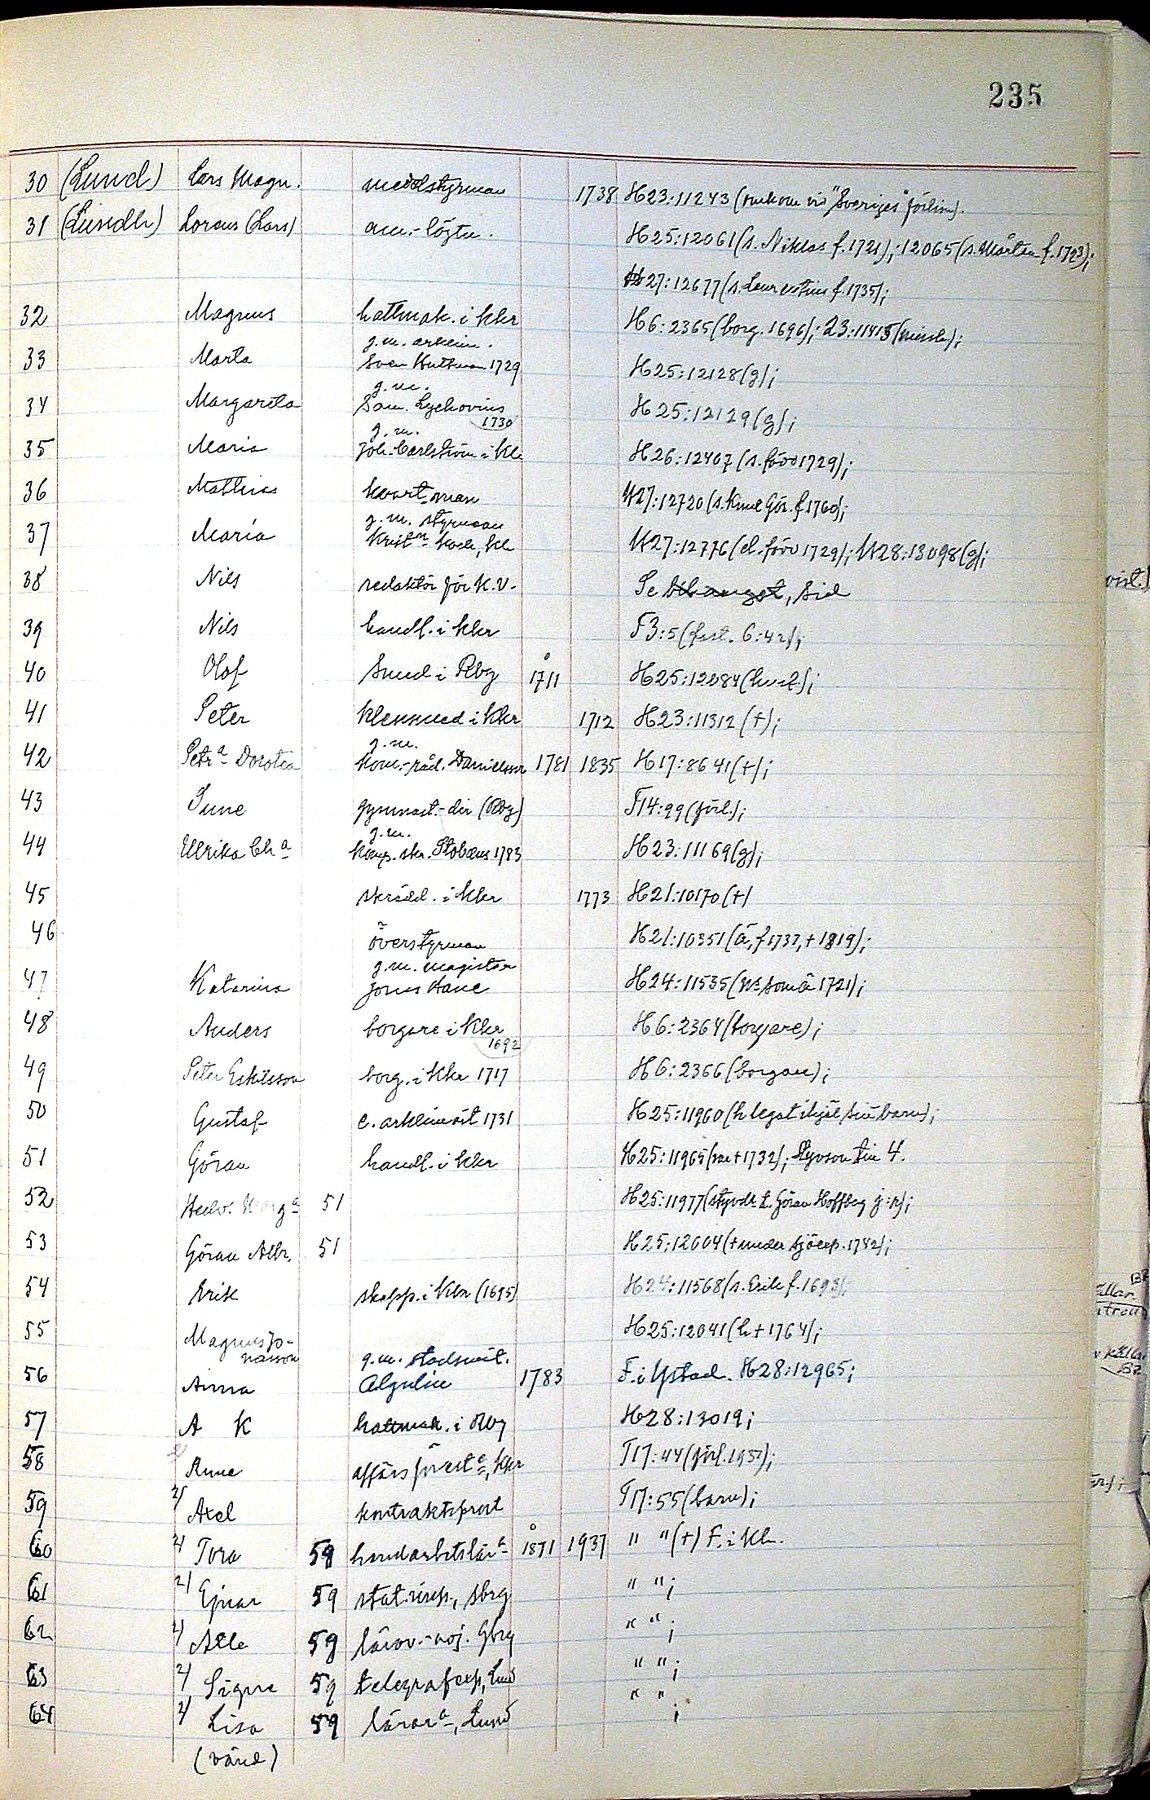 235
30 (Lund) Lars Magn. medelstyrman 1738 H23:11243 (omkom vid "Sveriges" förlisn).
31 (Lundh) Lorens (Lars) am.-löjtn. H25:12061 (s. Niklas f.1721); 12065 (s. Mårten f.1723);
H27:12677 (s. Laurentius f.1735);
32 Magnus hattmak. i Kkr H6:2365 (borg. 1696); 23:11415
33 Marta g.m. arklim. Sven Hultman 1729 H25:12128 (g);
34 Margareta g.m. Sam. Lychovius 1730 H25:12129 (g);
35 Maria g.m. Joh. Carlström i Kkr H26:12407 (s. förr 1729);
36 Mathias kvart.man H27:12720 (s. Knut Gör. f.1760);
37 Maria g.m. styrman Kristn Kock, Kk H27:12776 (d. förr 1729); H28:13098 (g);
38 Nils redaktör för K.V. Se sid
39 Nils handl. i Kkr T3:5 (fast. 6:42);
40 Olof smed i Rby 1711 H25:12084
41 Peter klensmed i Kkr 1712 H23:11312 (+);
42 Petra Dorotea g.m. kom.-råd. Danielsson 1781 1835 H17:8641 (+);
43 Sune gymnast.-dir (Rby) T14:99 (förl.);
44 Ullrika Cha g.m. kamr. skr. Stobæus 1783 H23:11169 (g);
45 skrädd. i Kkr 1773 H21:10170 (+)
46 överstyrman H21:10351 (ä, f1737, + 1819);
47 Katarina g.m. magister Jonas Hane H24:11535 (ns som ä 1721);
48 Anders borgare i Kkr 1692 H6:2364 (borgare);
49 Peter Eskilsson borg. i Kkr 1717 H6:2366 (borgare);
50 Gustaf e. arklimäst 1731 H25:11960 (h legat ihjäl sin barn);
51 Göran handl. i Kkr H25:11965 + 1732); Styvson sin 4.
52 Hedv. Marga 51 H25:11977 (styvdr t. Göran Hoffberg g:r);
53 Göran Albr. 51 H25:12004 (+ under sjöexp. 1742);
54 Erik skepp. i Kkr (1695) H24:11568 (s. Erik f.1693).
55 Magnus Jonasson H25:12041 (h + 1764);
56 Anna g.m. stadsmäst. Algulin 1783 F. i Ystad. H28:12965;
57 A K hattmak. i Rby H28:13019;
58 Rune affärsföresta, Kkr T17:44 (förl. 1951);
59 2/ Axel kontraktsprost T17:55 (barn);
60 2/ Tora 59 handarbetslära 1871 1937 " " (+) F. i Kk.
61 2/ Ejnar 59 stat.insp., sbrg " ";
62 2/ Atle 59 lärov.-adj. Gbrg " ";
63 2/ Signe 59 telegrafexp, Lund " ";
64 2/ Lisa 59 lärara, Lund " ";
(vänd)